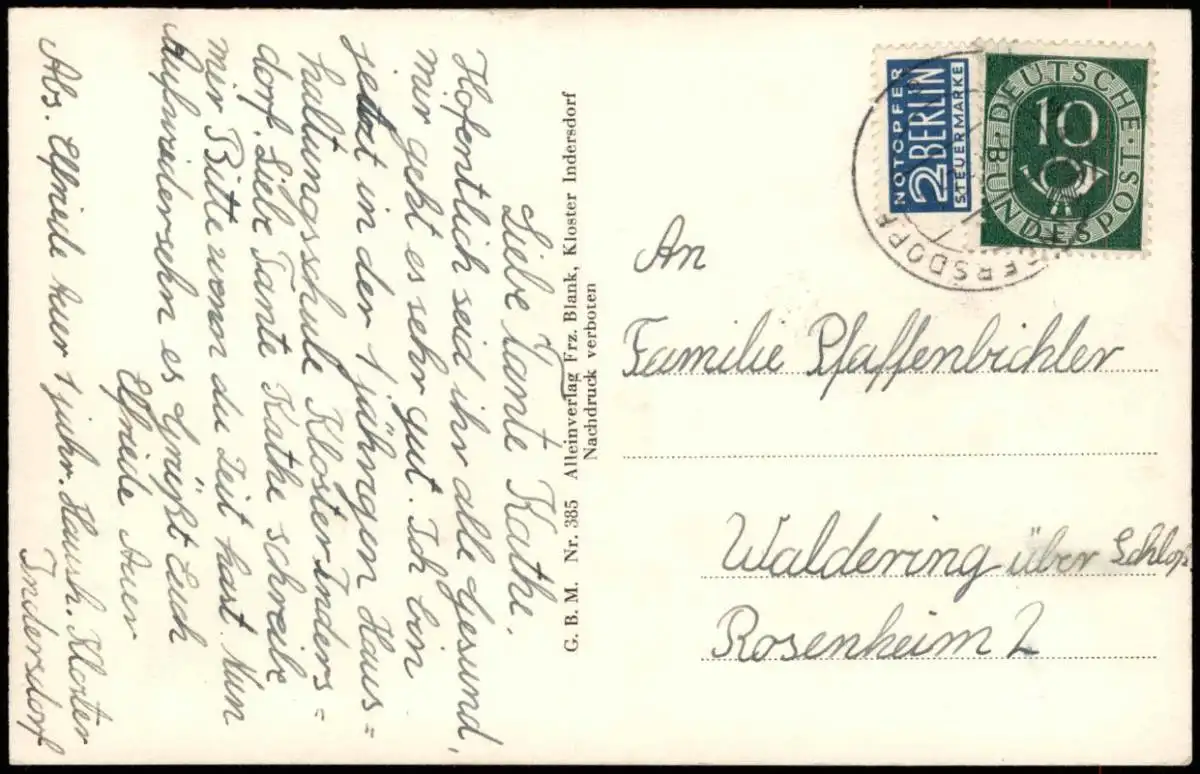 Liebe Tante Kathe.
Hofentlich seid ihr alle Gesund,
mir geht es sehr gut. Ich bin
jetzt in der 1 jährigen Haus=
haltungsschule Kloster Inders=
dorf. Liebe Tante Kathe schreibe
mir Bitte wenn du Zeit hast. Nun
Aufwiedersehn es Grüßt Euch
Elfriede Auer
Abs. Elfriede Auer 1 jähr. Haush. Kloster
Indersdorf
G. B. M. Nr. 385 Alleinverlag Frz. Blank, Kloster Indersdorf
Nachdruck verboten
NOTOPFER
2 BERLIN
STEUERMARKE
DEUTSCHE
10
BUNDESPOST
ERSDORF
An
Familie Pfaffenbichler
Waldering über Schloß
Rosenheim 2